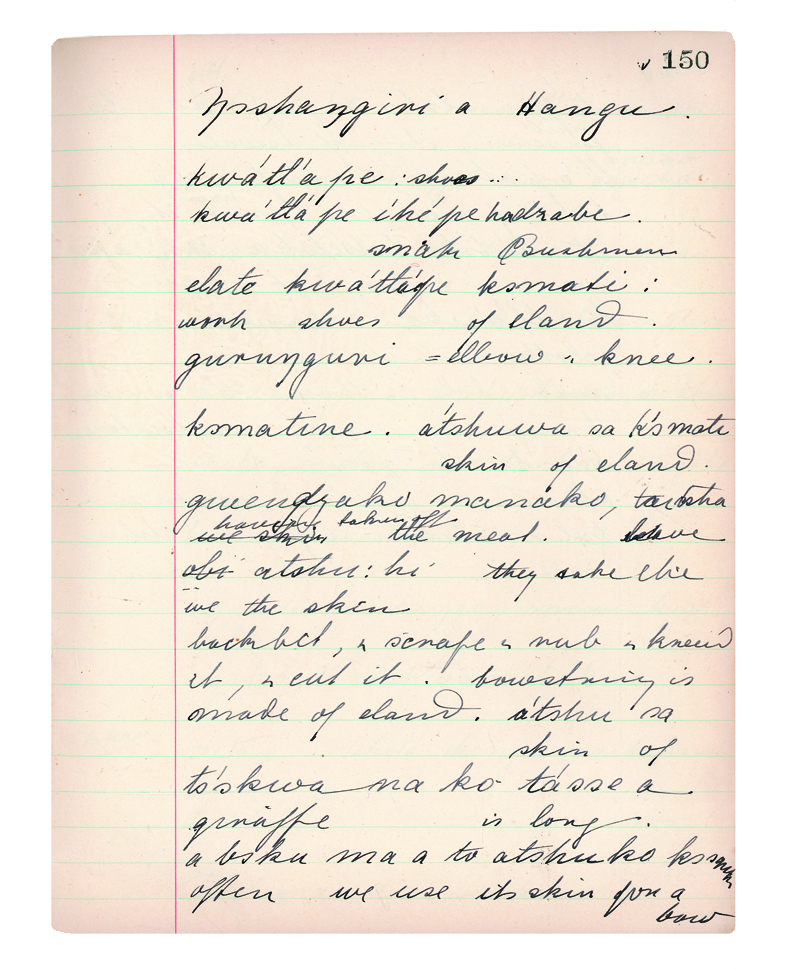 150
a Hangu.
kwá'tl'a pe : shoes
kwá'tlá pe íhé pe hadzabe.
make Bushmen
elate kwá'tlápe ksmati :
work shoes of eland.
gurunguri = elbow " knee.
ksmatine . átshuwa sa k'smati
skin of eland.
manáko,
having taken off
we skin the meat. leave
obi atshu: hi they take the
we the skin
, & scrape & rub & knead
it, & cut it. bowstring is
made of eland. átshu sa
skin of
tó'skwa na ko tásse a
giraffe is long.
a bsku ma a to atshuko
often we use its skin for a
bow